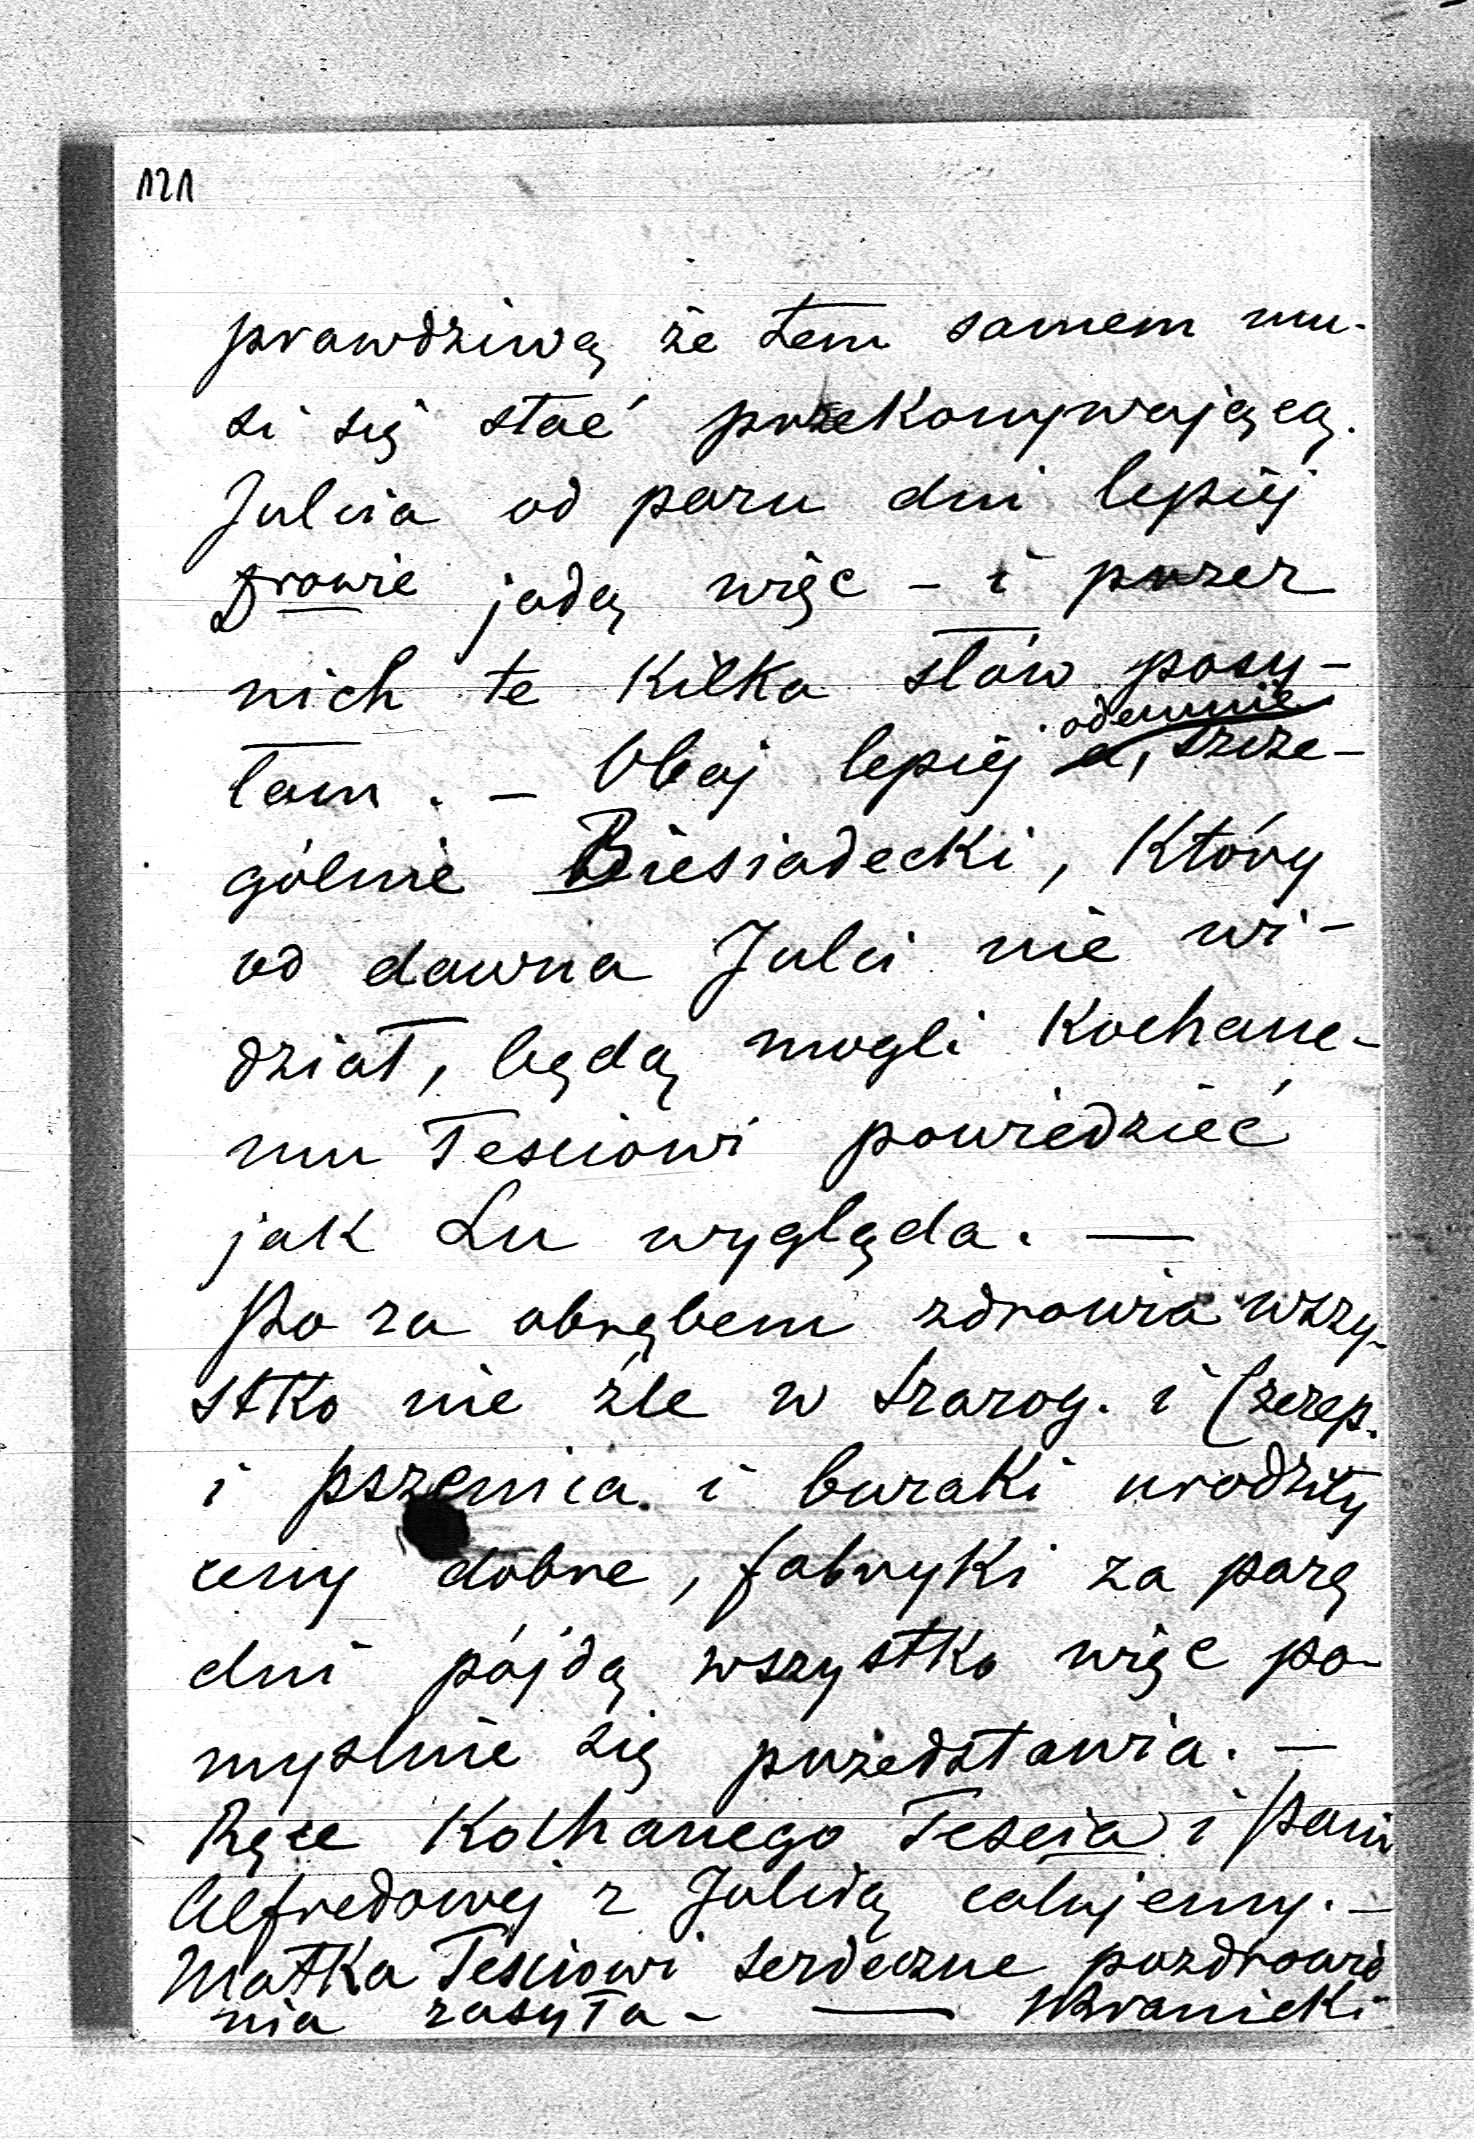 121
prawdziwą że tem samem mu-
si się stać przekonywającą.
Julcia od paru dni lepiej
jadą więc - i przez
nich te kilka słów posy-
łam. - Obaj lepiej odemnie
a, szcze-
gólnie Biesiadecki, który
od dawna Julci nie wi-
dział, będą mogli kochane-
mu Tesciowi powiedzieć
jak Lu wygląda. —
Po za obrębem zdrowia wszy-
stko nie źle w Szarog. i Czerep.
i pszenica i buraki urodziły
ceny dobre, fabryki za parę
dni pójdą wszystko więc po-
myslnie się przedstawia. —
Ręce Kochanego Tescia i Pani
Alfredowej z Julcią całujemy. —
Matka Tesciowi serdeczne pozdrowie
nia zasyła - — MBranicki